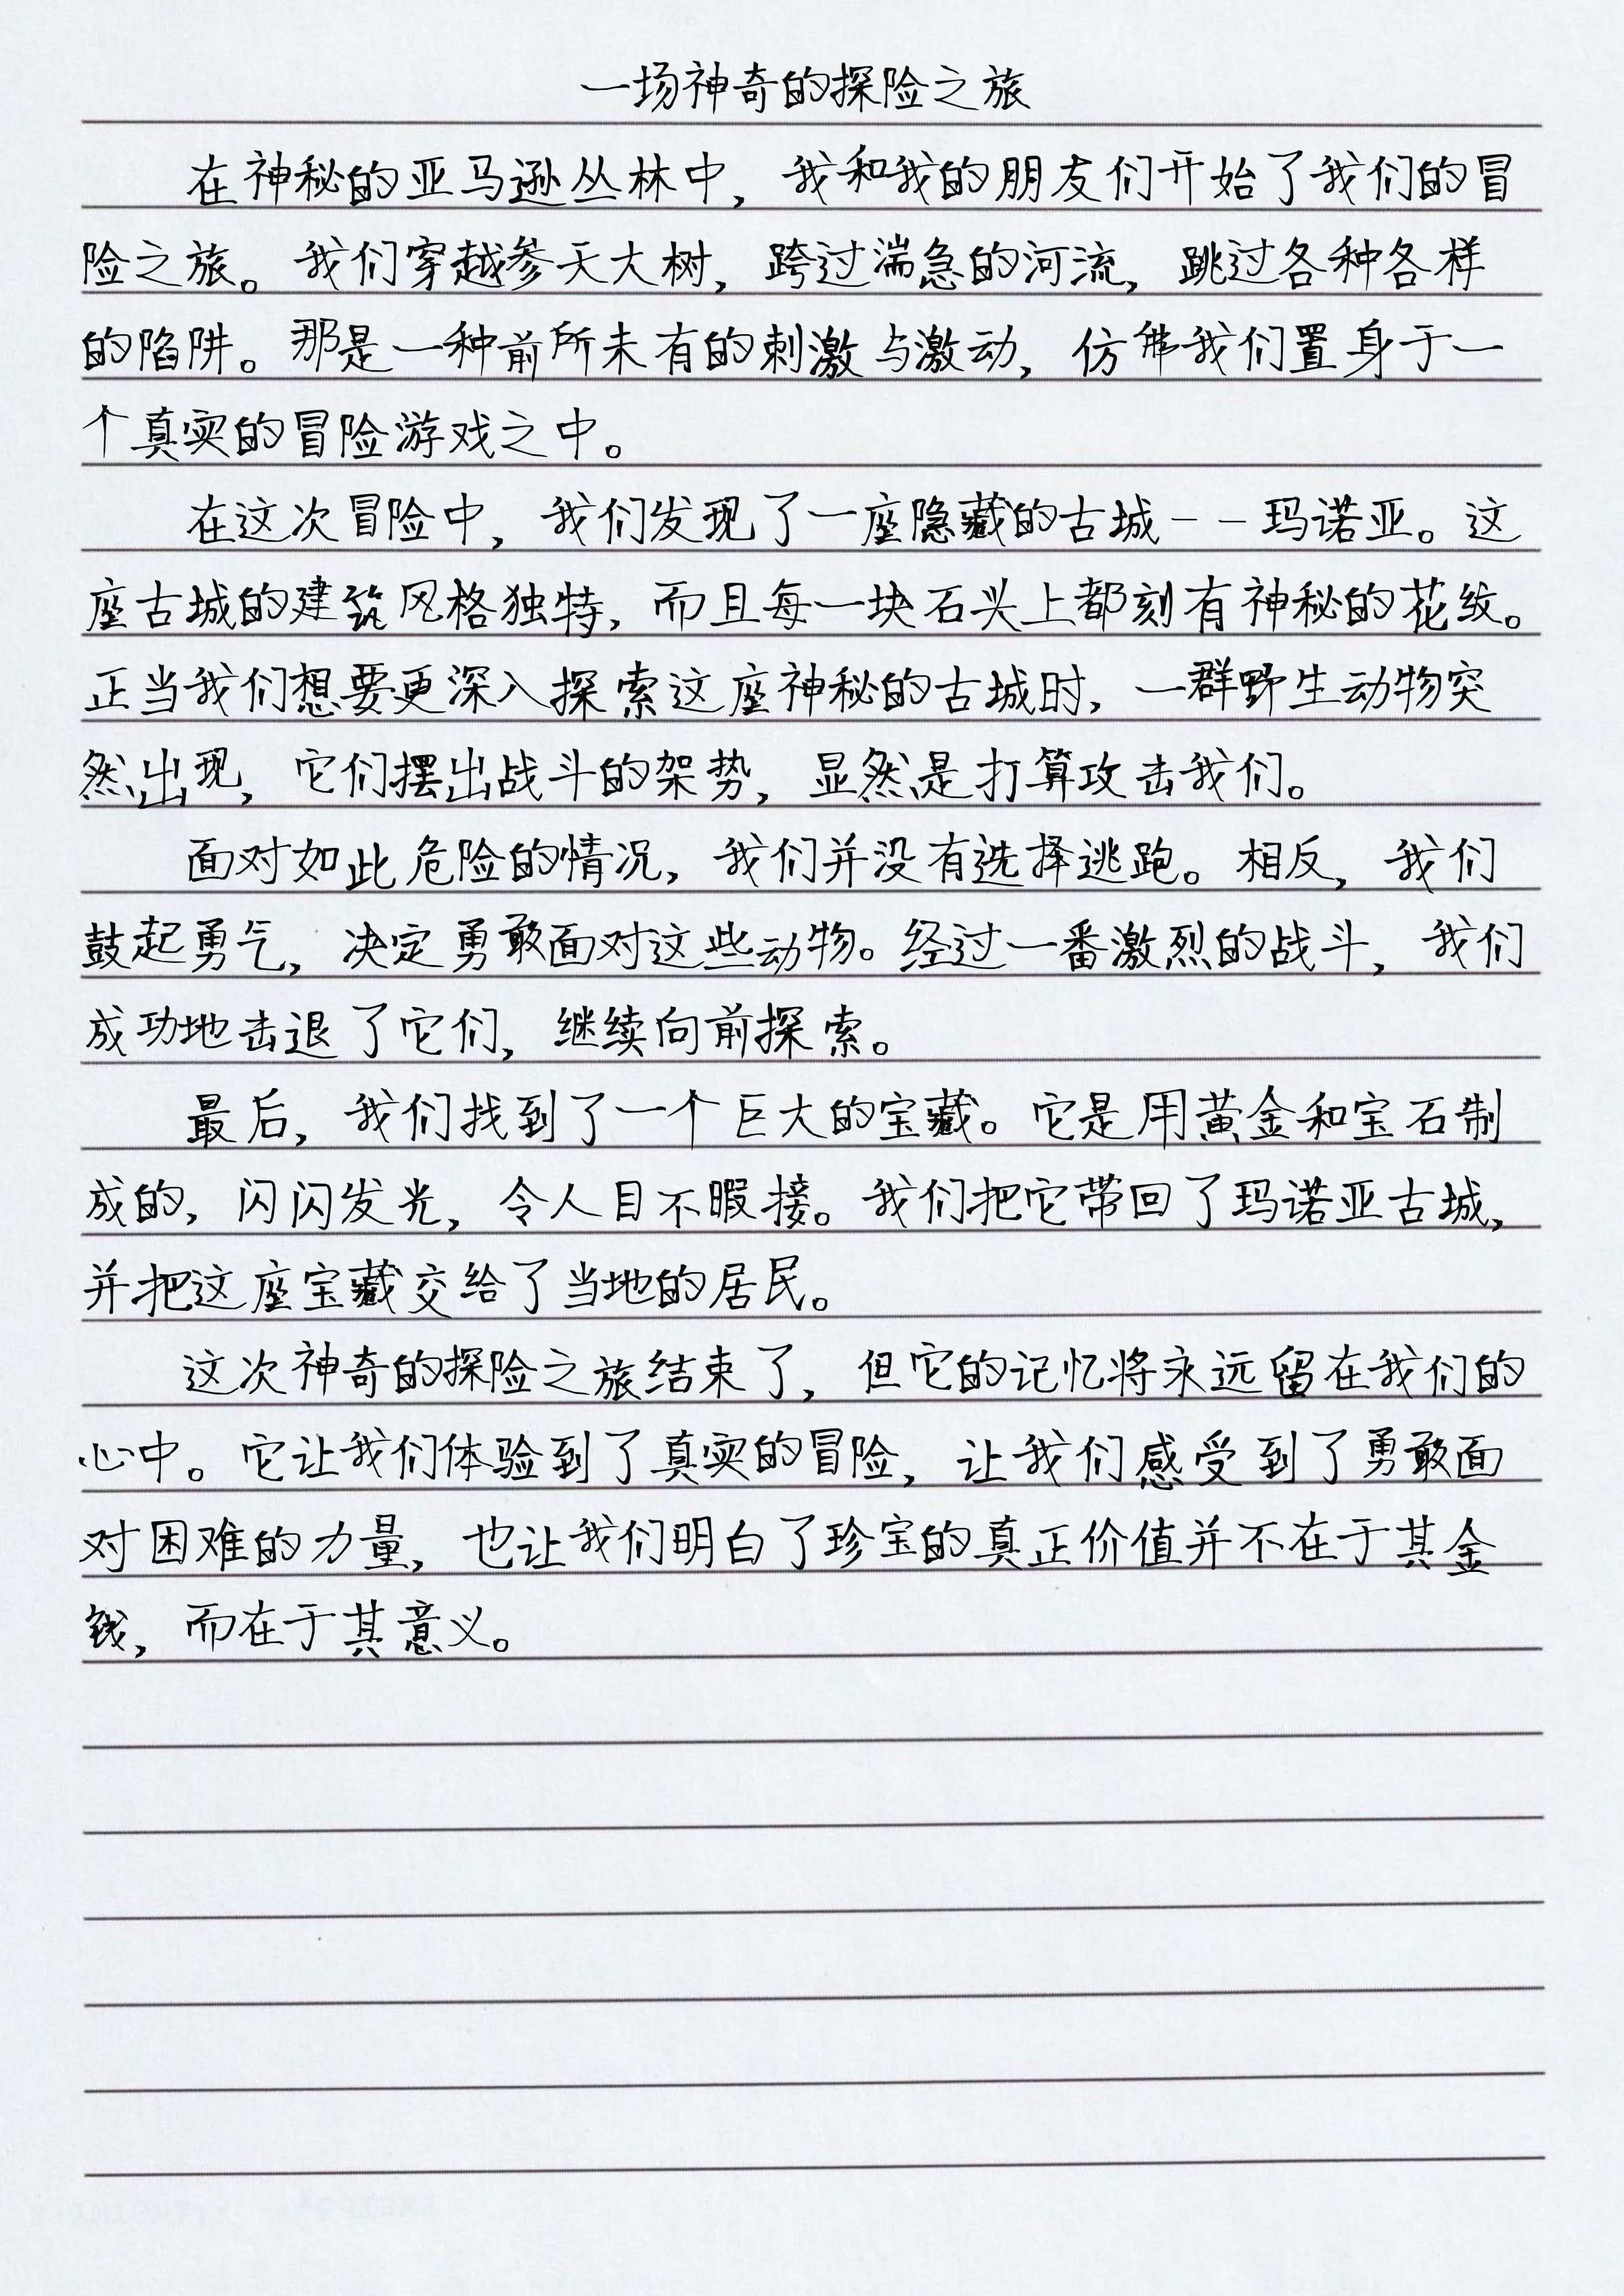 一场神奇的探险之旅
在神秘的亚马逊丛林中，我和我的朋友们开始了我们的冒
险之旅。我们穿越参天大树，跨过湍急的河流，跳过各种各样
的陷阱。那是一种前所未有的刺激与激动，仿佛我们置身于一
个真实的冒险游戏之中。
在这次冒险中，我们发现了一座隐藏的古城--玛诺亚。这
座古城的建筑风格独特，而且每一块石头上都刻有神秘的花纹。
正当我们想要更深入探索这座神秘的古城时，一群野生动物突
然出现，它们摆出战斗的架势，显然是打算攻击我们。
面对如此危险的情况，我们并没有选择逃跑。相反，我们
鼓起勇气，决定勇敢面对这些动物。经过一番激烈的战斗，我们
成功地击退了它们，继续向前探索。
最后，我们找到了一个巨大的宝藏。它是用黄金和宝石制
成的，闪闪发光，令人目不暇接。我们把它带回了玛诺亚古城，
并把这座宝藏交给了当地的居民。
这次神奇的探险之旅结束了，但它的记忆将永远留在我们的
心中。它让我们体验到了真实的冒险，让我们感受到了勇敢面
对困难的力量，也让我们明白了珍宝的真正价值并不在于其金
钱，而在于其意义。